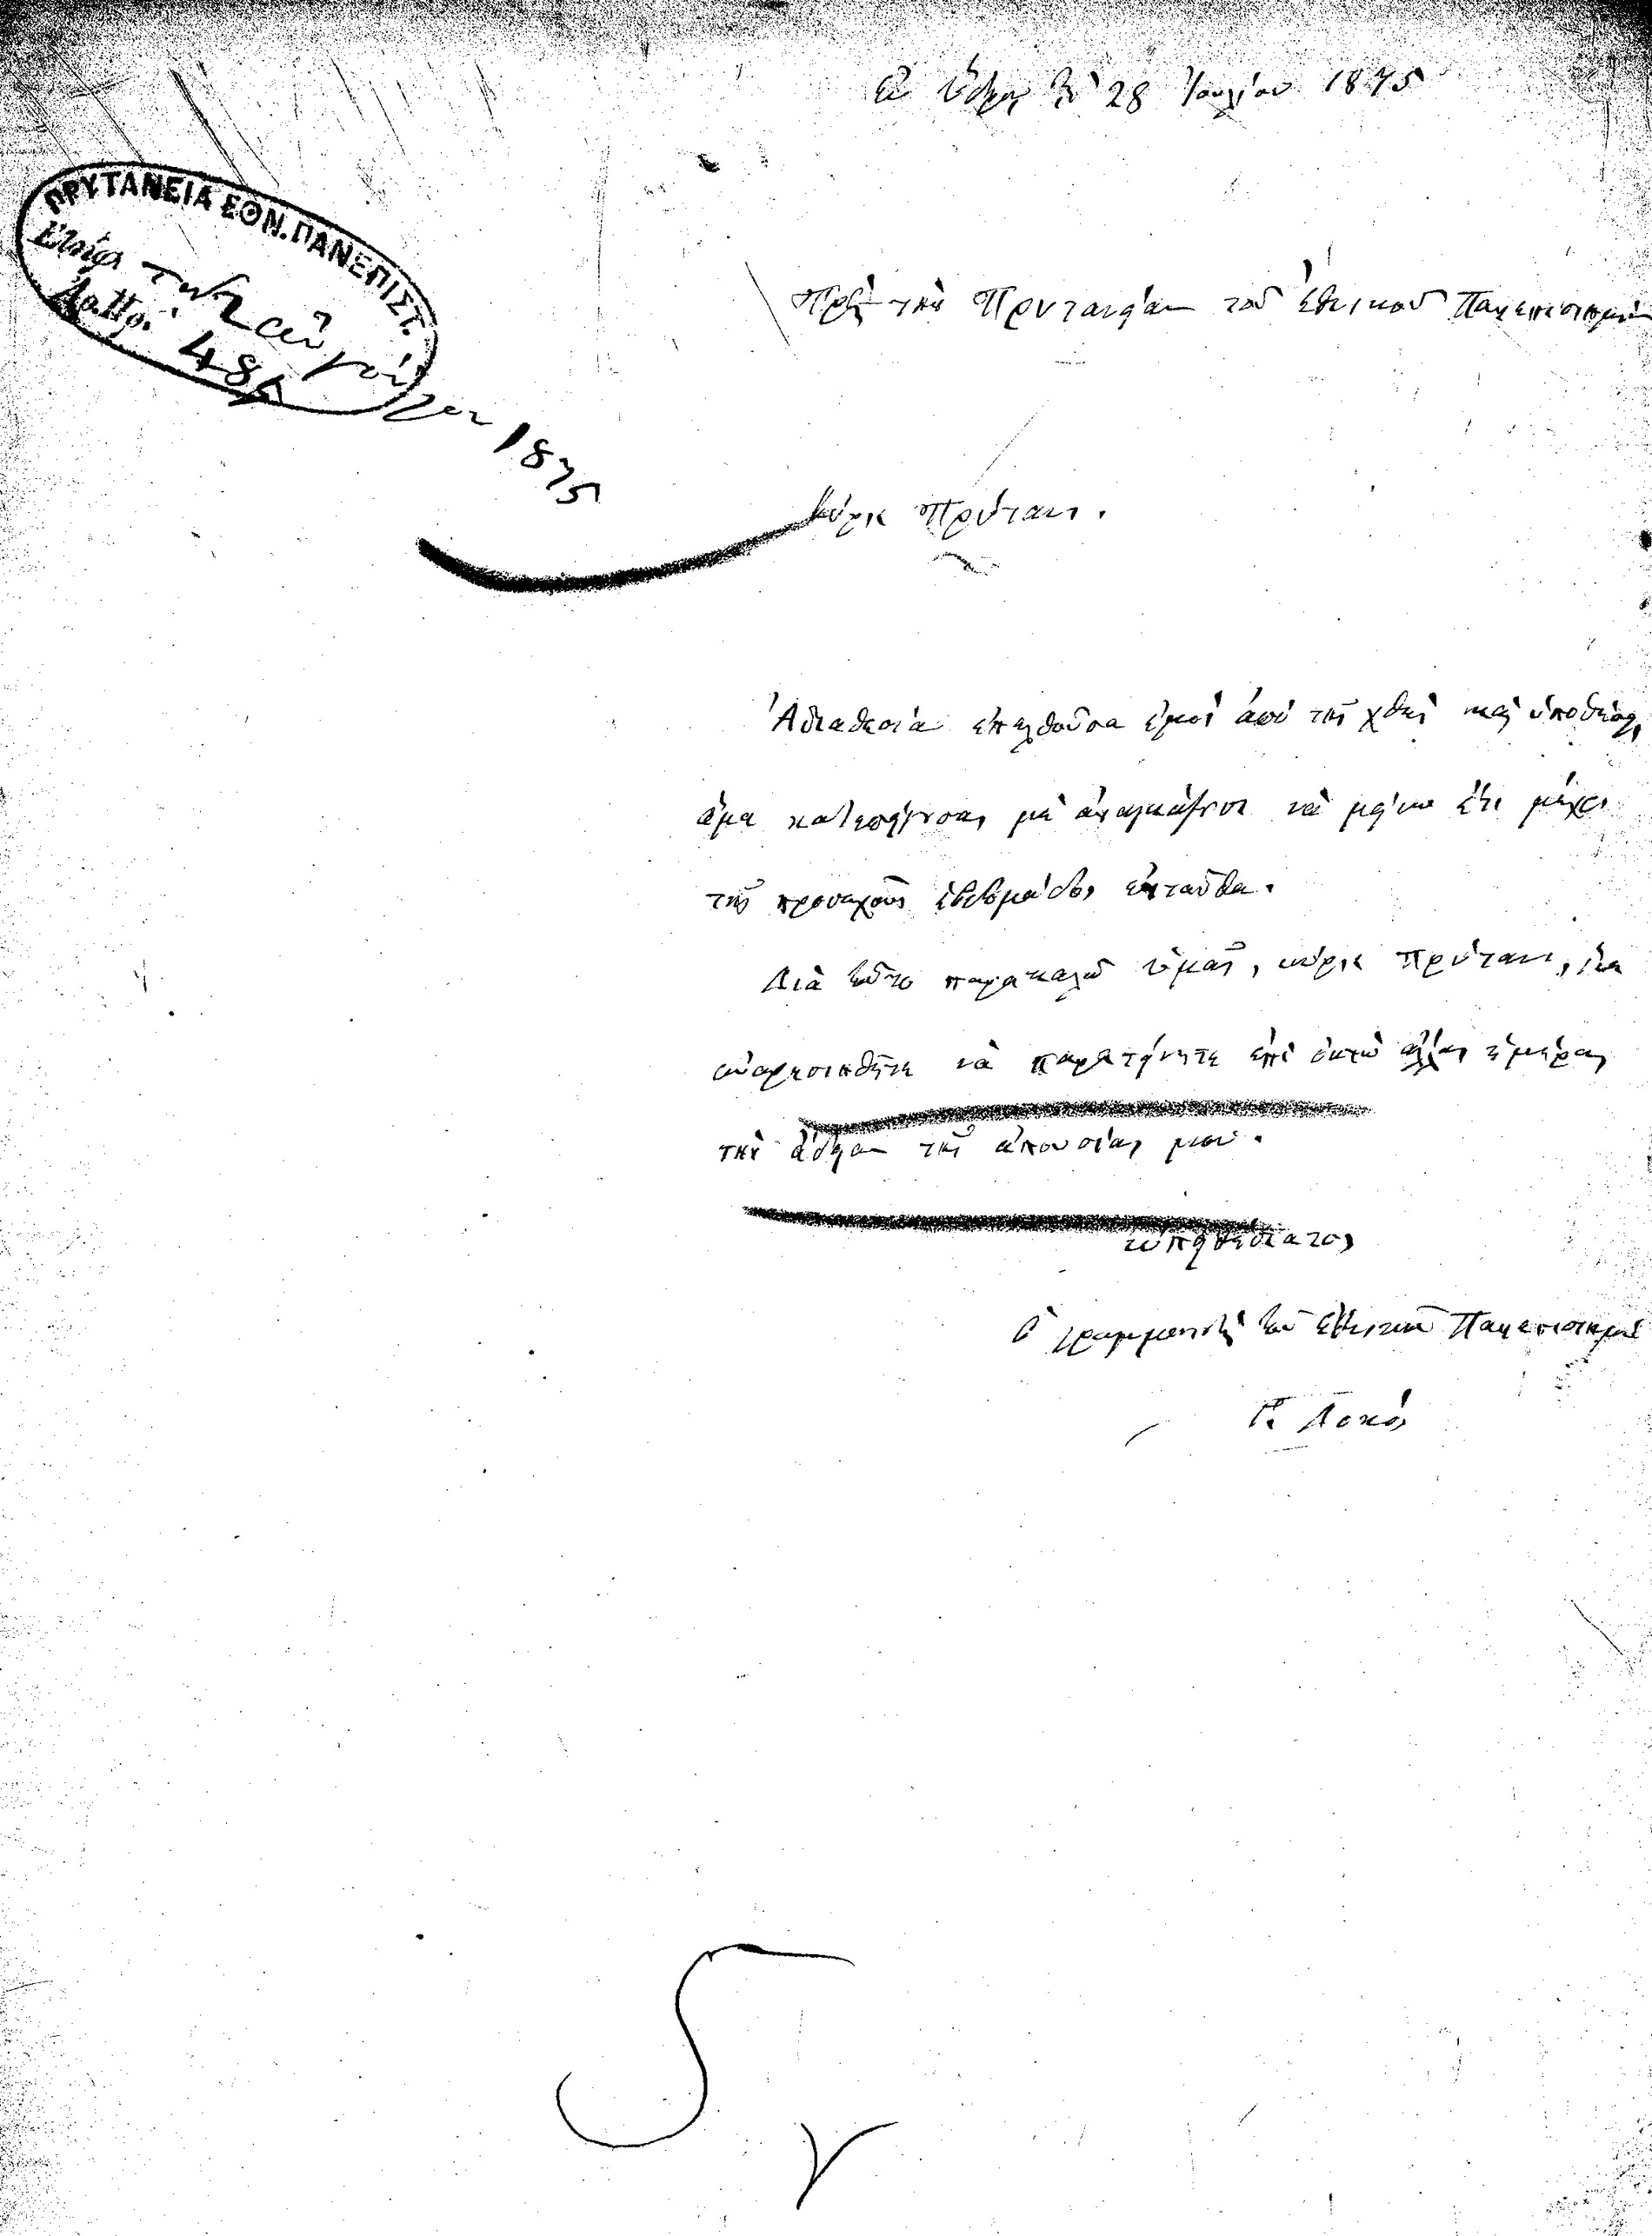 Ἐν Ὕδρᾳ τῇ 28 Ἰουλίου 1875
ΠΡΥΤΑΝΕΙΑ ΕΘΝ. ΠΑΝΕΠΙΣΤ.
τῇ 2 αὐγούστου 1875
Ἀρ. Πρ. 48
Πρὸς τὴν Πρυτανείαν τοῦ Ἐθνικοῦ Πανεπιστημίου
Κύριε Πρύτανι.
Ἀδιαθεσία ἐπελθοῦσα ἐμοὶ ἀπὸ τῆς χθὲς καὶ
ἅμα κατεπείγουσα, μὲ ἀναγκάζουσι νὰ μείνω ἔτι μέχρι
τῆς προσεχοῦς ἑβδομάδος ἐνταῦθα.
Διὰ τοῦτο παρακαλῶ ὑμᾶς, κύριε Πρύτανι, ἵνα
εὐαρεστηθῆτε νὰ παρατείνητε ἐπὶ ὀκτὼ ἄλλας ἡμέρας
τὴν ἄδειαν τῆς ἀπουσίας μου.
εὐπειθέστατος
Ὁ γραμματεὺς τοῦ Ἐθνικοῦ Πανεπιστημίου
Γ. Δοκός